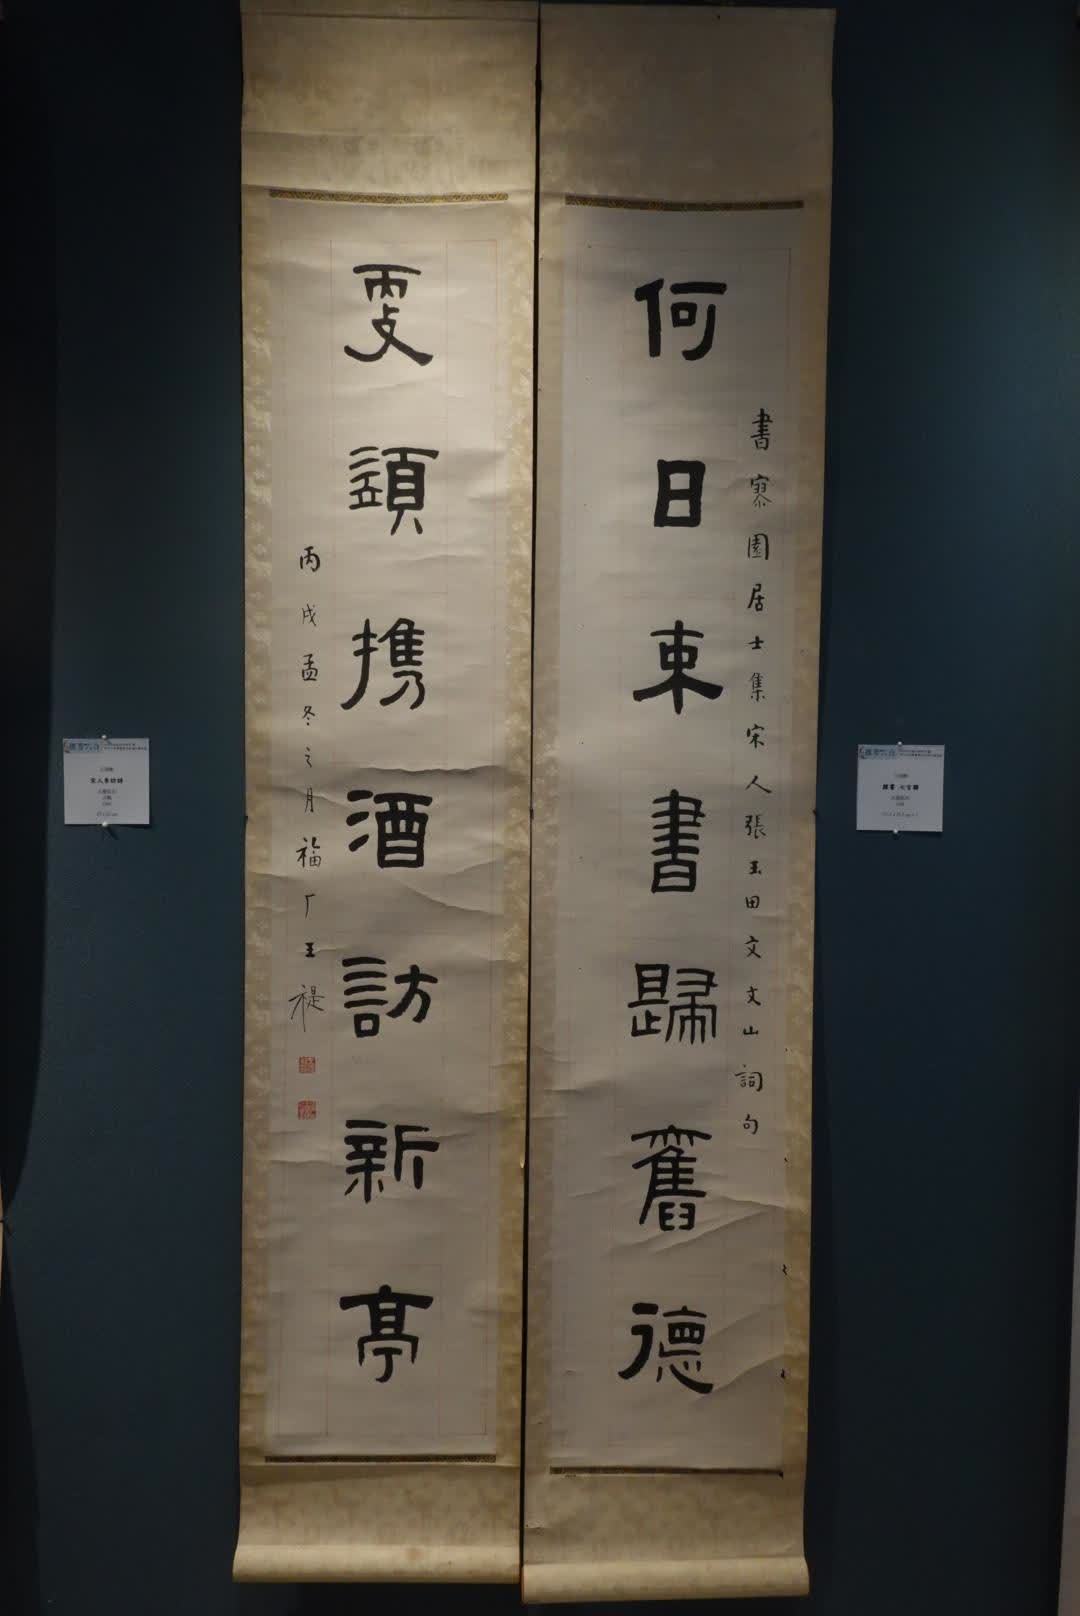 何日束書歸舊德
書園居士集宋人張玉田文文山詞句
更須携酒訪新亭
丙戌孟冬之月福厂王禔
隸書 七言聯